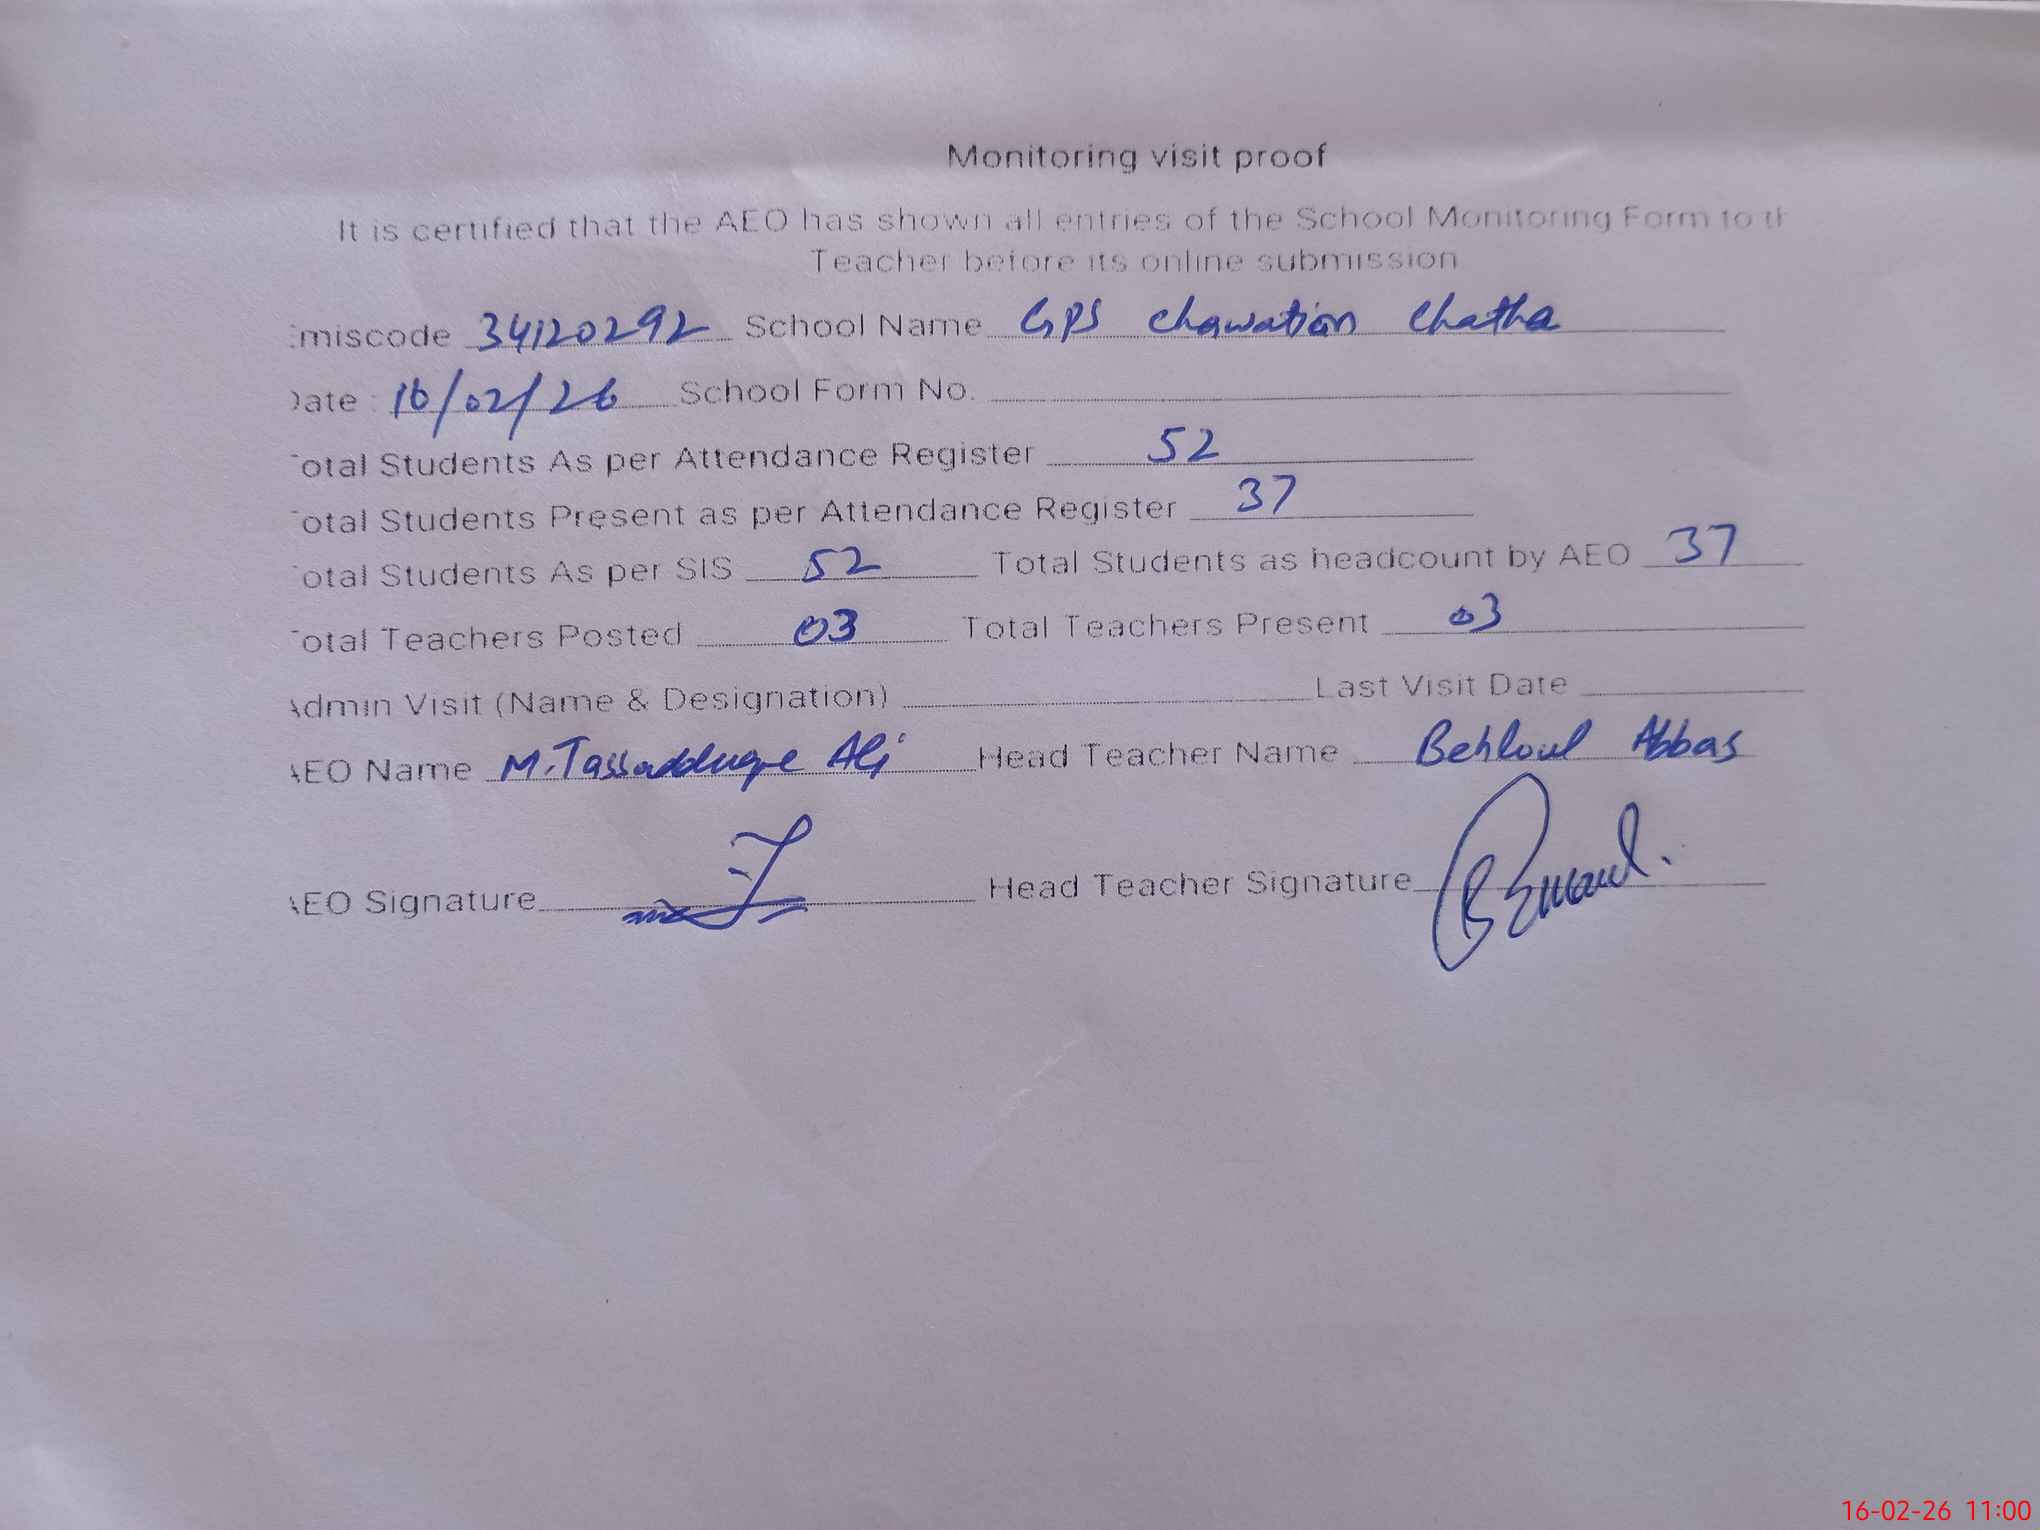 Monitoring visit proof
It is certified that the AEO has shown all entries of the School Monitoring Form to th
Teacher before its online submission
Emiscode 34120292 School Name GPS Chawation Chatha
Date : 16/02/26 School Form No.
Total Students As per Attendance Register 52
Total Students Present as per Attendance Register 37
Total Students As per SIS 52 Total Students as headcount by AEO 37
Total Teachers Posted 03 Total Teachers Present 03
Admin Visit (Name & Designation) Last Visit Date
AEO Name M.Tassadduqe Ali Head Teacher Name Behloul Abbas
AEO Signature Head Teacher Signature
16-02-26 11:00